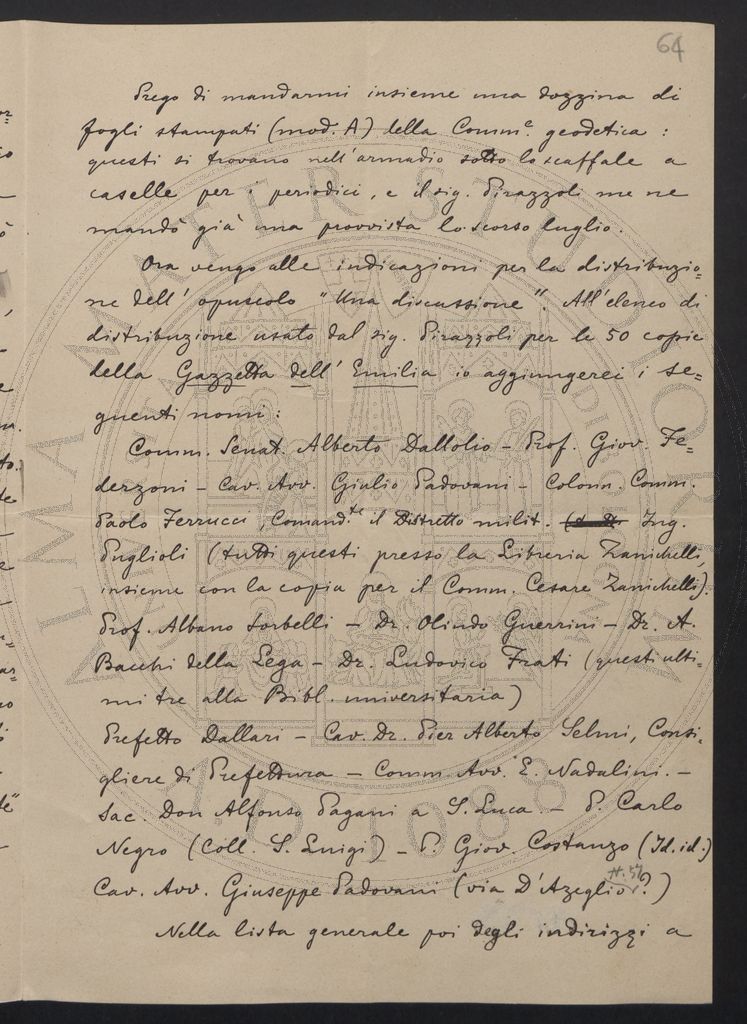 64
Prego di mandarmi insieme una dozzina di
fogli stampati (mod. A) della Comm.e geodetica :
questi si trovano nell'armadio sotto lo scaffale a
caselle per i periodici, e il sig. Pirazzoli me ne
mandò già una provvista lo scorso luglio.
Ora vengo alle indicazioni per la distribuzio=
ne dell' opuscolo "Una discussione". All'elenco di
distribuzione usato dal sig. Pirazzoli per le 50 copie
della Gazzetta dell' Emilia io aggiungerei i se=
guenti nomi :
Comm. Senat. Alberto Dallolio – Prof. Giov. Fe=
derzoni – Cav. Avv. Giulio Padovani – Colonn. Comm.
Paolo Ferrucci, Comand.te il Distretto milit. Ing.
Puglioli (tutti questi presso la Libreria Zanichelli,
insieme con la copia per il Comm. Cesare Zanichelli).
Prof. Albano Sorbelli – Dr. Olindo Guerrini – Dr. A.
Bacchi della Lega – Dr. Ludovico Frati (questi ulti=
mi tre alla Bibl. universitaria)
Prefetto Dallari – Cav. Dr. Pier Alberto Selmi, Consi=
gliere di Prefettura – Comm. Avv. E. Nadalini. –
Sac. Don Alfonso Pagani a S. Luca – P. Carlo
Negro (Coll. S. Luigi) – P. Giov. Costanzo (Id. id.)
Cav. Avv. Giuseppe Padovani (via D'Azeglio ?)
Nella lista generale poi degli indirizzi a
ALMA MATER STUDIORUM
A.D. 1088